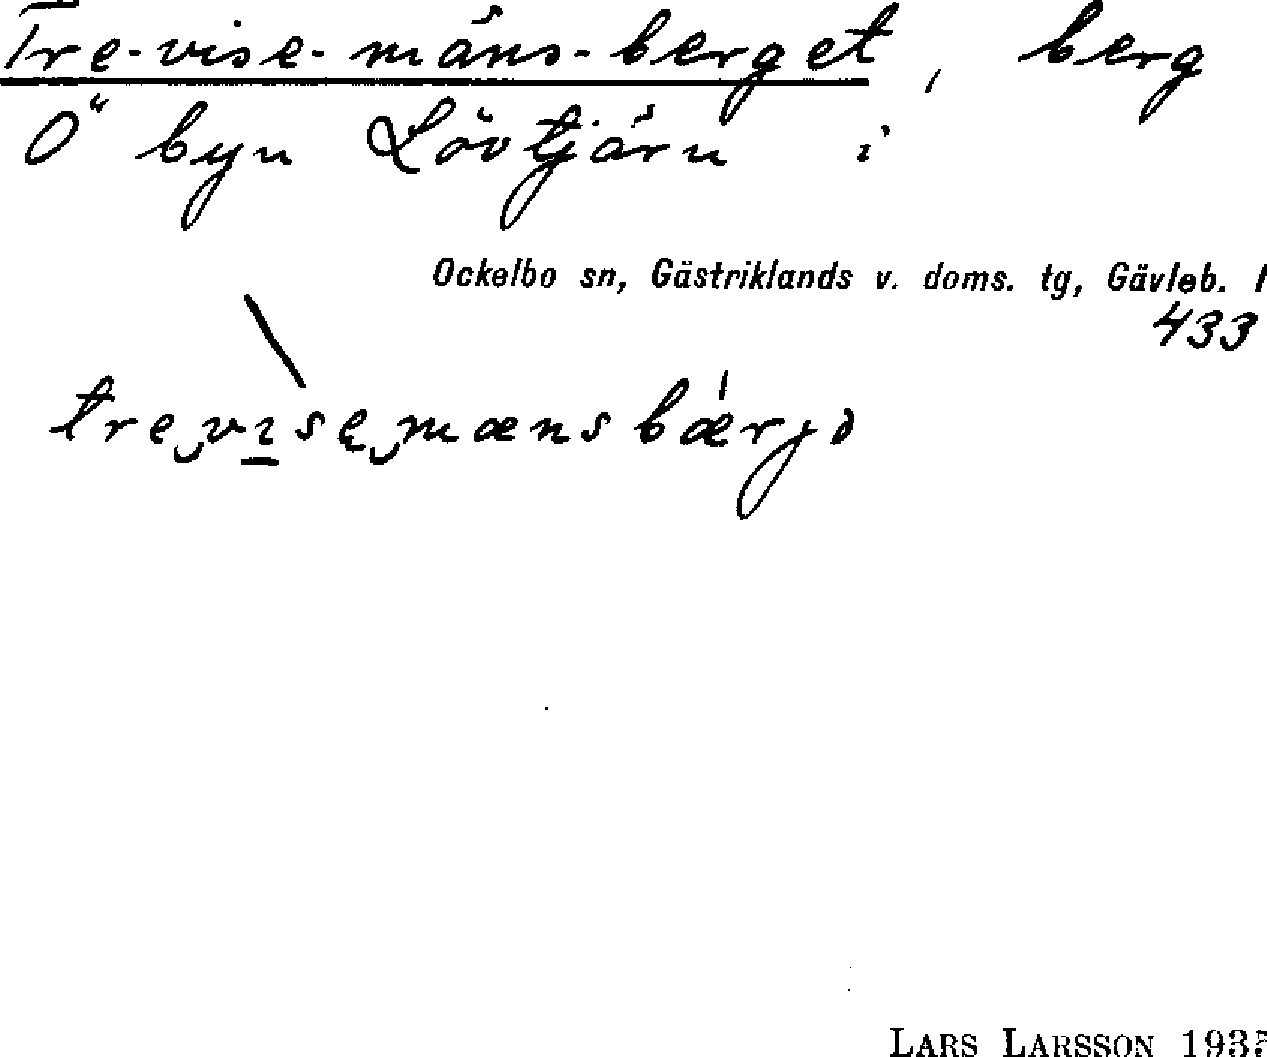 Tre-vise-mäns-berget, berg
Ö byn Lövtjärn i
Ockelbo sn, Gästriklands v. doms. tg, Gävleb. l
433
tre‿vı̲sę‿mænsbǽrjə
LARS LARSSON